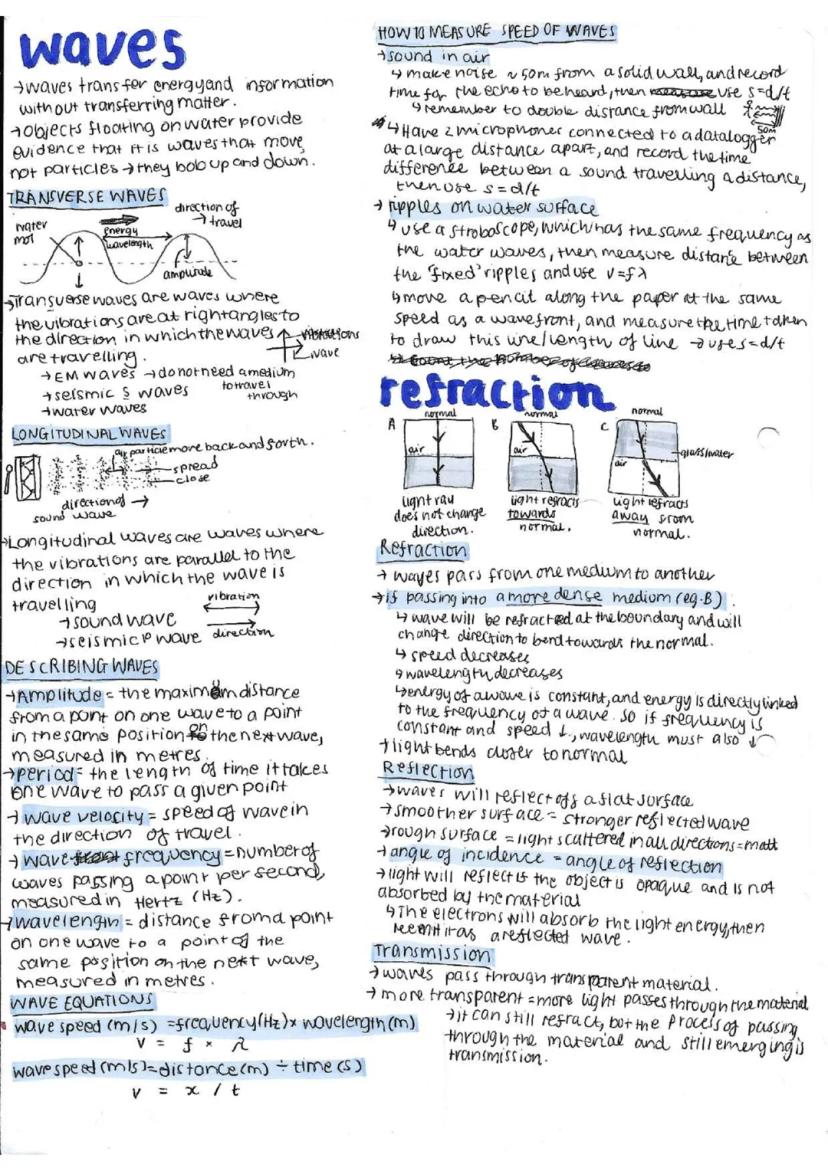 waves
→waves transfer energy and information
without transferring matter.
→objects floating on water provide
evidence that it is waves that move,
not particles → they bob up and down.
TRANSVERSE WAVES
direction of
→ travel
water
mol
energy
wavelength
amplitude
→Transverse waves are waves where
the vibrations are at right angles to
the direction in which the waves
are travelling.
vibrations
wave
→EM waves → do not need a medium
to travel
through
→seismic S waves
→water waves
LONGITUDINAL WAVES
air particle more back and forth.
spread
close
direction of →
sound wave
→Longitudinal waves are waves where
the vibrations are parallel to the
direction in which the wave is
travelling
vibration
direction
→sound wave
→seismic P wave
DESCRIBING WAVES
→Amplitude = the maximum distance
from a point on one wave to a point
in the same position on the next wave,
measured in metres.
→period = the length of time it takes
one wave to pass a given point
→ wave velocity = speed of wave in
the direction of travel.
→ wave frequency = number of
waves passing a point per second,
measured in Hertz (Hz).
→wavelength = distance from a point
on one wave to a point of the
same position on the next wave,
measured in metres.
WAVE EQUATIONS
wave speed (m/s) = frequency (Hz) x wavelength (m)
v = f x λ
wave speed (m/s) = distance (m) ÷ time (s)
v = x / t
HOW TO MEASURE SPEED OF WAVES
→sound in air
↳ make noise ~ 50m from a solid wall, and record
time for the echo to be heard, then use s=d/t
↳ remember to double distance from wall
50m
↳ Have 2 microphones connected to a datalogger
at a large distance apart, and record the time
difference between a sound travelling a distance,
then use s = d/t
→ ripples on water surface
↳ use a stroboscope, which has the same frequency as
the water waves, then measure distance between
the 'fixed' ripples and use v=fλ
↳ move a pencil along the paper at the same
speed as a wavefront, and measure the time taken
to draw this line/length of line → use s=d/t
refraction
A
normal
air
light ray
does not change
direction.
B
normal
air
light refracts
towards
normal.
C
normal
glass/water
air
light refracts
away from
normal.
Refraction
→ waves pass from one medium to another
→ if passing into a more dense medium (eg. B)
↳ wave will be refracted at the boundary and will
change direction to bend towards the normal.
↳ speed decreases
↳ wavelength decreases
↳ energy of a wave is constant, and energy is directly linked
to the frequency of a wave. so if frequency is
constant and speed ↓, wavelength must also ↓
→ light bends closer to normal
Reflection
→waves will reflect off a flat surface
→smoother surface = stronger reflected wave
→rough surface = light scattered in all directions = matt
→angle of incidence = angle of reflection
→light will reflect if the object is opaque and is not
absorbed by the material
↳The electrons will absorb the light energy, then
reemit it as a reflected wave.
Transmission
→waves pass through transparent material.
→ more transparent = more light passes through the material
→it can still refract, but the process of passing
through the material and still emerging is
transmission.